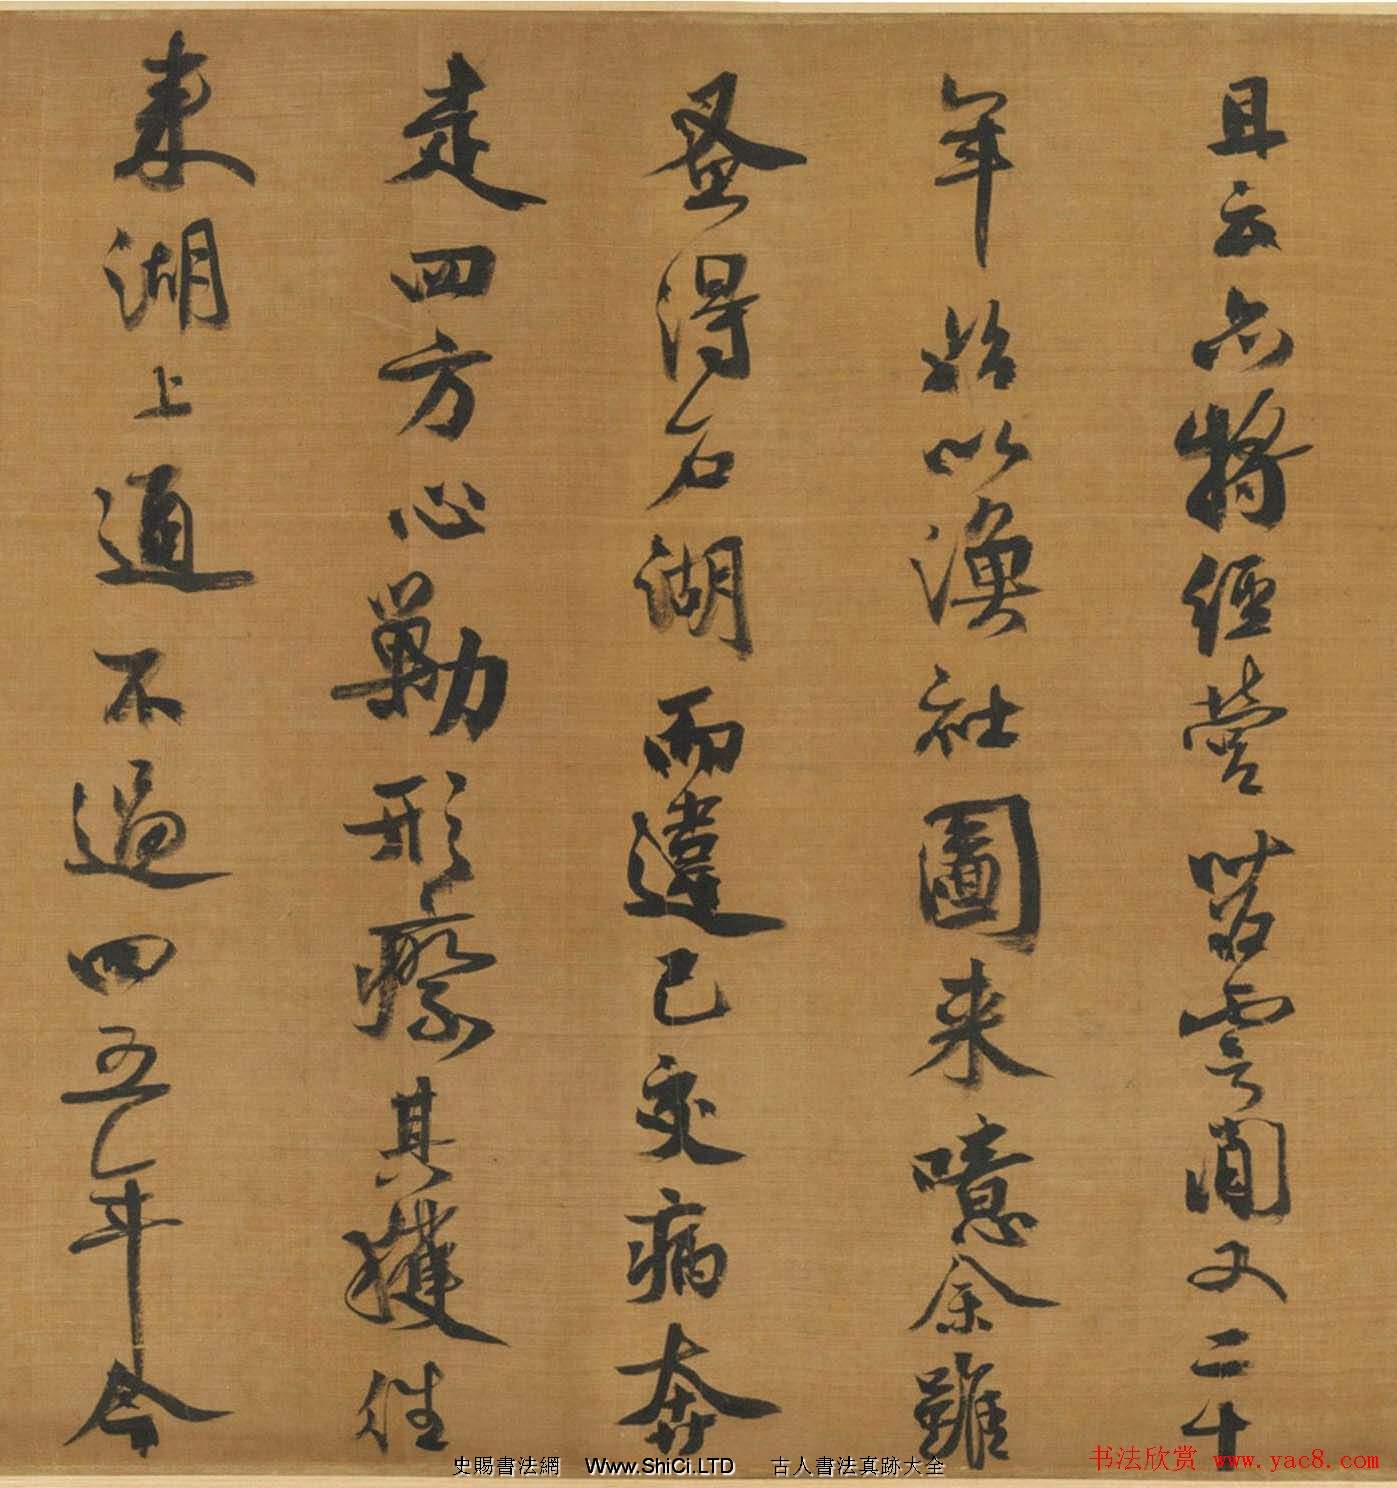 且云亦將經營苕霅間又二十
年始以漁社圖来噫余雖
蚤得石湖而違己交病奔
走四方心勦形瘵其獲往
来湖上通不過四五年今
史賜書法網 Www.ShiCi.LTD 古人書法真跡大全
书法欣赏 www.yac8.com